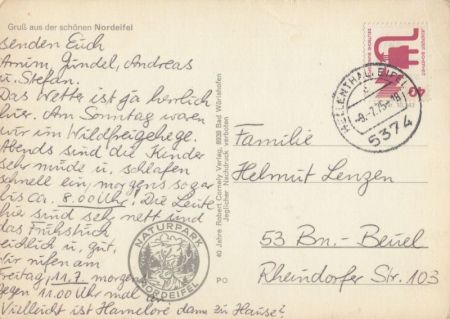 Gruß aus der schönen Nordeifel
senden Euch
Armin, Gundel, Andreas
u. Stefan.
Das Wetter ist ja herrlich
hier. Am Sonntag waren
wir im Wildfreigehege.
Abends sind die Kinder
sehr müde u. schlafen
schnell ein, morgens sogar
bis ca. 8.00 Uhr! Die Leute
hier sind sehr nett und
das Frühstück
reichlich u. gut.
Wir rufen am
Freitag, 11.7. morgens
gegen 11.00 Uhr mal
Vielleicht ist Hamelore dann zu Hause?
NATURPARK
NORDEIFEL
40 Jahre Robert Cornely Verlag, 8939 Bad Wörishofen
Jeglicher Nachdruck verboten
PO
40
HELLENTHAL, EIFEL
-9.7.75-18
5374
Familie
Helmut Lenzen
53 Bn.-Beuel
Rheindorfer Str. 103